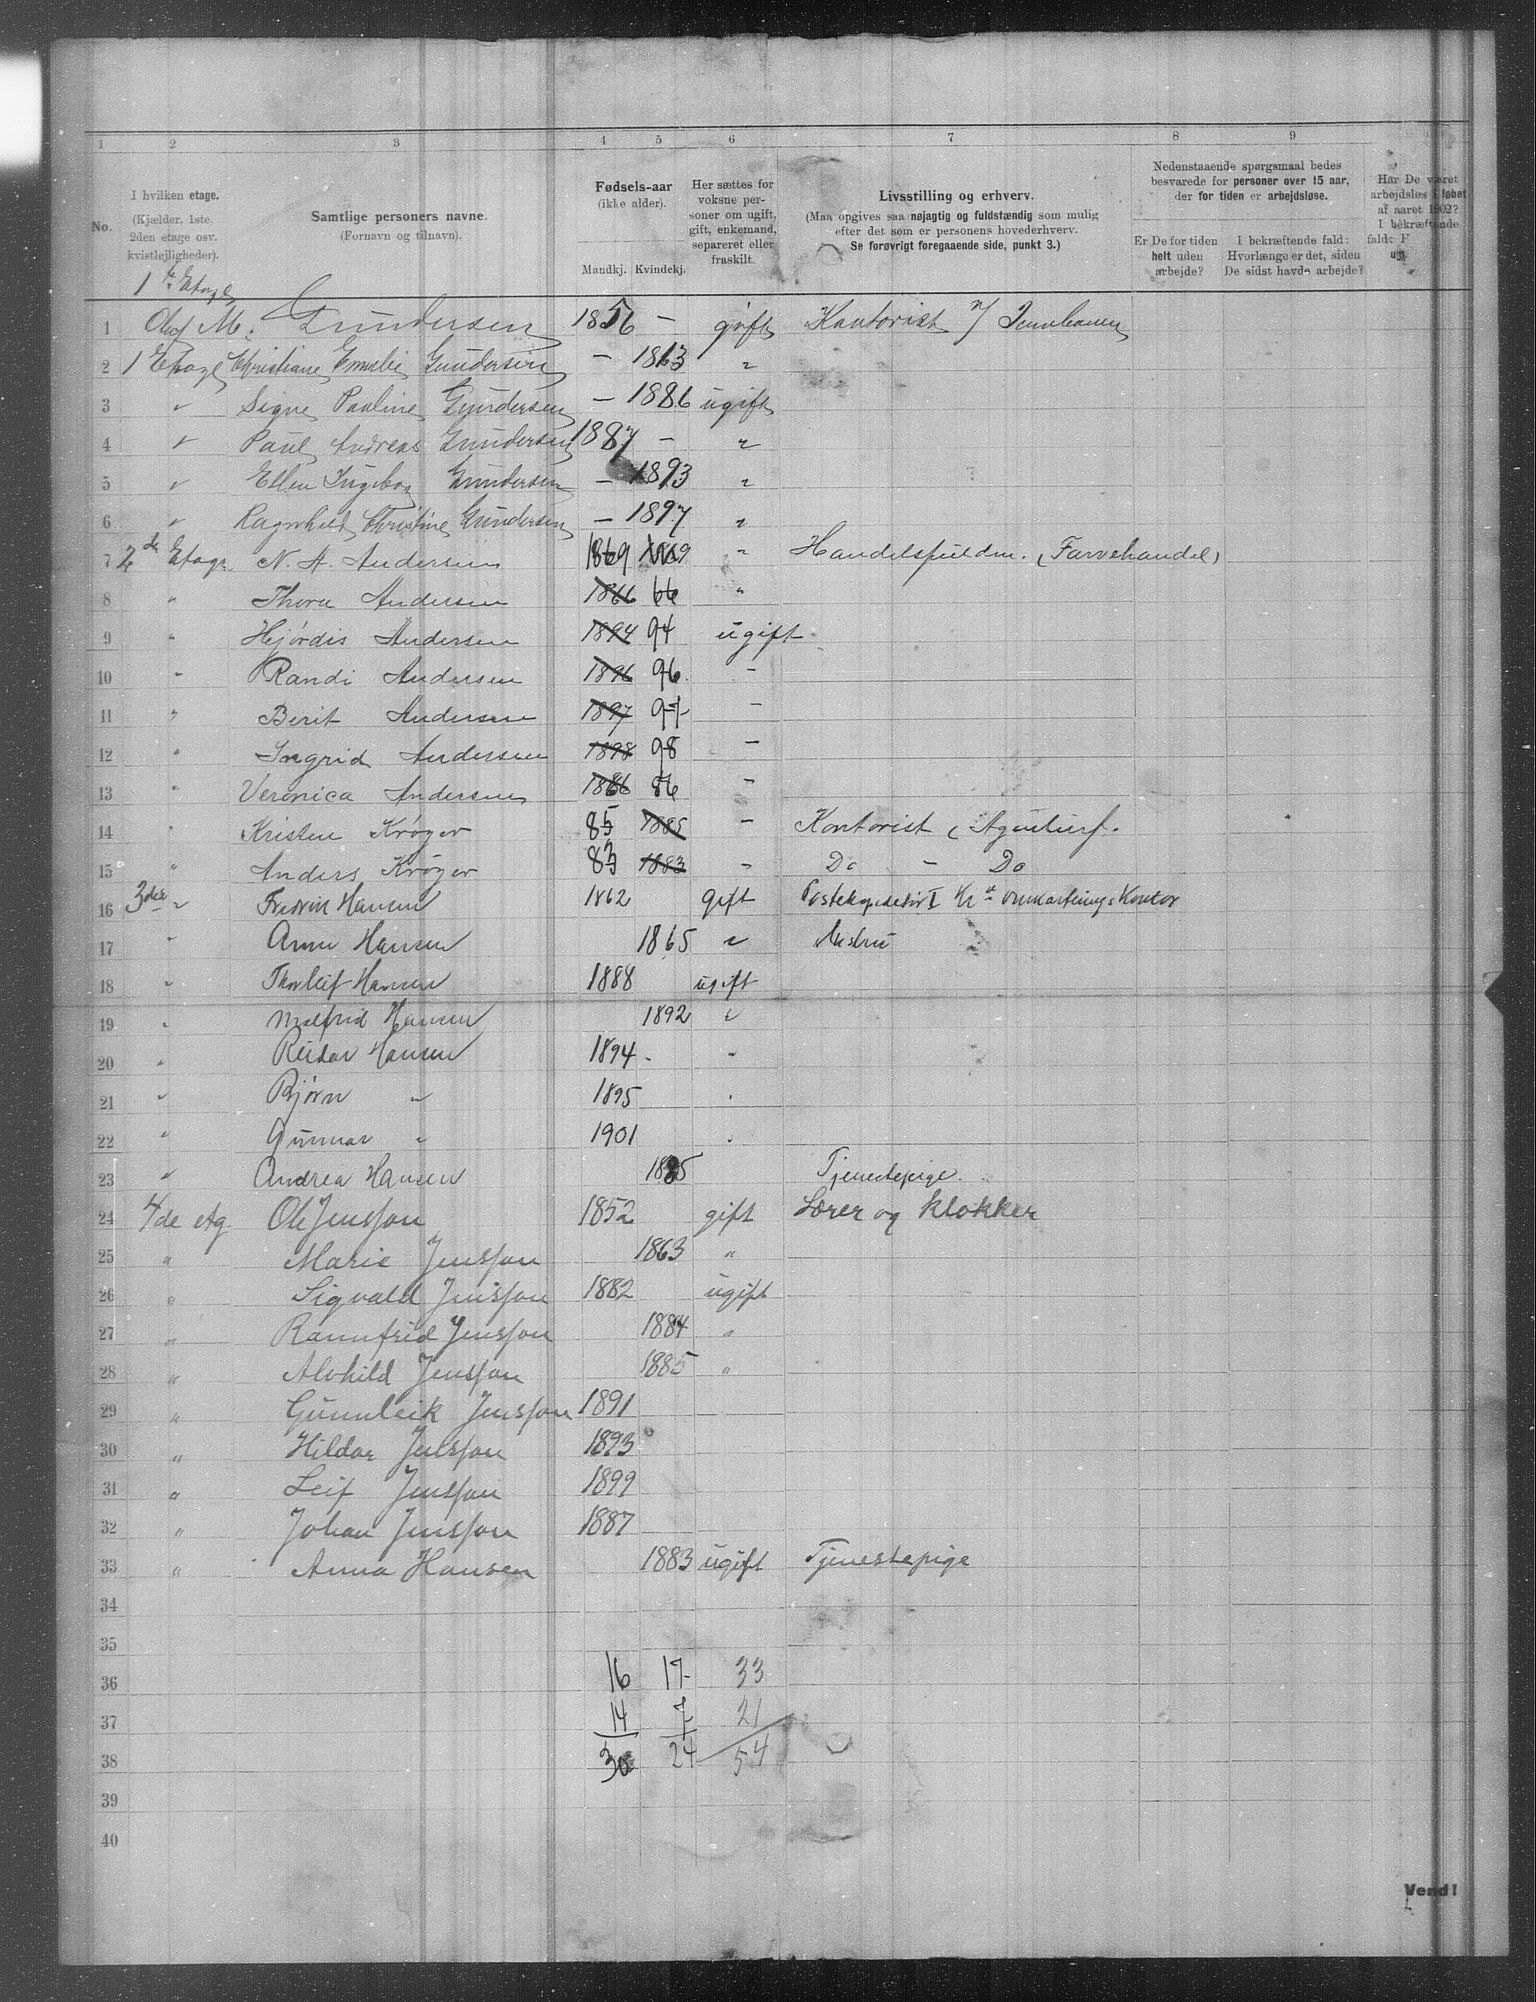 1 2 3 4 5 6 7 8 9
No.
I hvilken etage.
(Kjælder, 1ste,
2den etage osv.
kvistlejligheder).
Samtlige personers navne.
(Fornavn og tilnavn).
Fødsels-aar
(ikke alder).
Mandkj. Kvindekj.
Her sættes for
voksne per-
soner om ugift,
gift, enkemand,
separeret eller
fraskilt.
Livsstilling og erhverv.
(Maa opgives saa nøjagtig og fuldstændig som mulig
efter det som er personens hovederhverv.
Se forøvrigt foregaaende side, punkt 3.)
Nedenstaaende spørgsmaal bedes
besvarede for personer over 15 aar,
der for tiden er arbejdsløse.
Er De for tiden
helt uden
arbejde?
I bekræftende fald:
Hvorlænge er det, siden
De sidst havde arbejde?
Har De været
arbejdsløs i løbet
af aaret 1902?
I bekræftende
fald:
1ste Etage
1 Oluf M. Gundersen 1856 — gift Kantorist v/ Jernbanen
2 1 Etage Christiane Gundersen — 1863 "
3 " Signe Pauline Gundersen — 1886 ugift
4 " Paul Andreas Gundersen 1887 — "
5 " Ellen Ingeborg Gundersen — 1893 "
6 " Ragnhild Christine Gundersen — 1897 "
7 2de Etage N. A. Andersen 1869 " Handelsfuldm. (Farvehandel)
8 " Thora Andersen 1866 66 "
9 " Hjørdis Andersen 1894 94 ugift
10 " Randi Andersen 1896 96 "
11 " Berit Andersen 1897 97 "
12 " Ingrid Andersen 1898 98 "
13 " Veronica Andersen 1886 86 "
14 " Kristen Krøger 85 1885 " Kontorist (Agenturf.
15 " Anders Krøger 83 1883 " Do — Do
16 3die " Fredrik Hansen 1862 gift Postekspeditør I Kra omkarterings Kontor
17 " Anna Hansen 1865 " Hustru
18 " Thorleif Hansen 1888 ugift
19 " Malfrid Hansen 1892 "
20 " Reidar Hansen 1894 "
21 " Bjørn " 1895 "
22 " Gunnar " 1901 "
23 " Andrea Hansen 1885 Tjenestepige.
24 4de etg Ole Jensson 1852 gift Lærer og klokker
25 " Marie Jensson 1863 "
26 " Sigvald Jensson 1882 ugift
27 " Rannfrid Jensson 1884 "
28 " Alvhild Jensson 1885 "
29 " Gunnleik Jensson 1891
30 " Hildar Jensson 1893
31 " Leif Jensson 1899
32 " Johan Jensson 1887
33 " Anna Hansen 1883 ugift Tjenestepige
34
35
36 16 17 33
37 14 7 21
38 30 24 54
39
40
Vend!